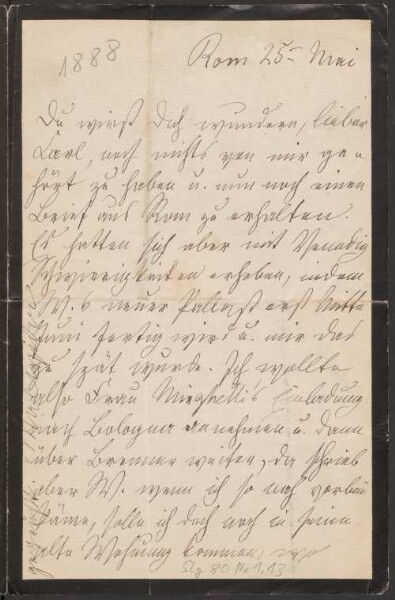 1888
Rom 25ⁿ Mai
Du wirst Dich wundern, lieber
Carl, noch nichts von mir ge=
hört zu haben u. nun noch einen
Brief aus Rom zu erhalten.
Es hatten sich aber mit Venedig
Schwierigkeiten erhoben, indem
W.s neuer Pallast erst Mitte
Juni fertig wird u. mir das
zu spät wurde. Ich wollte
also Frau Minghetti's Einladung
nach Bologna annehmen u. dann
über Brenner weiter, da schrieb
aber W. wenn ich so nah vorbei
käme, solle ich doch noch in seine
alte Wohnung kommen, wo
Slg 80 Nr. 1,13